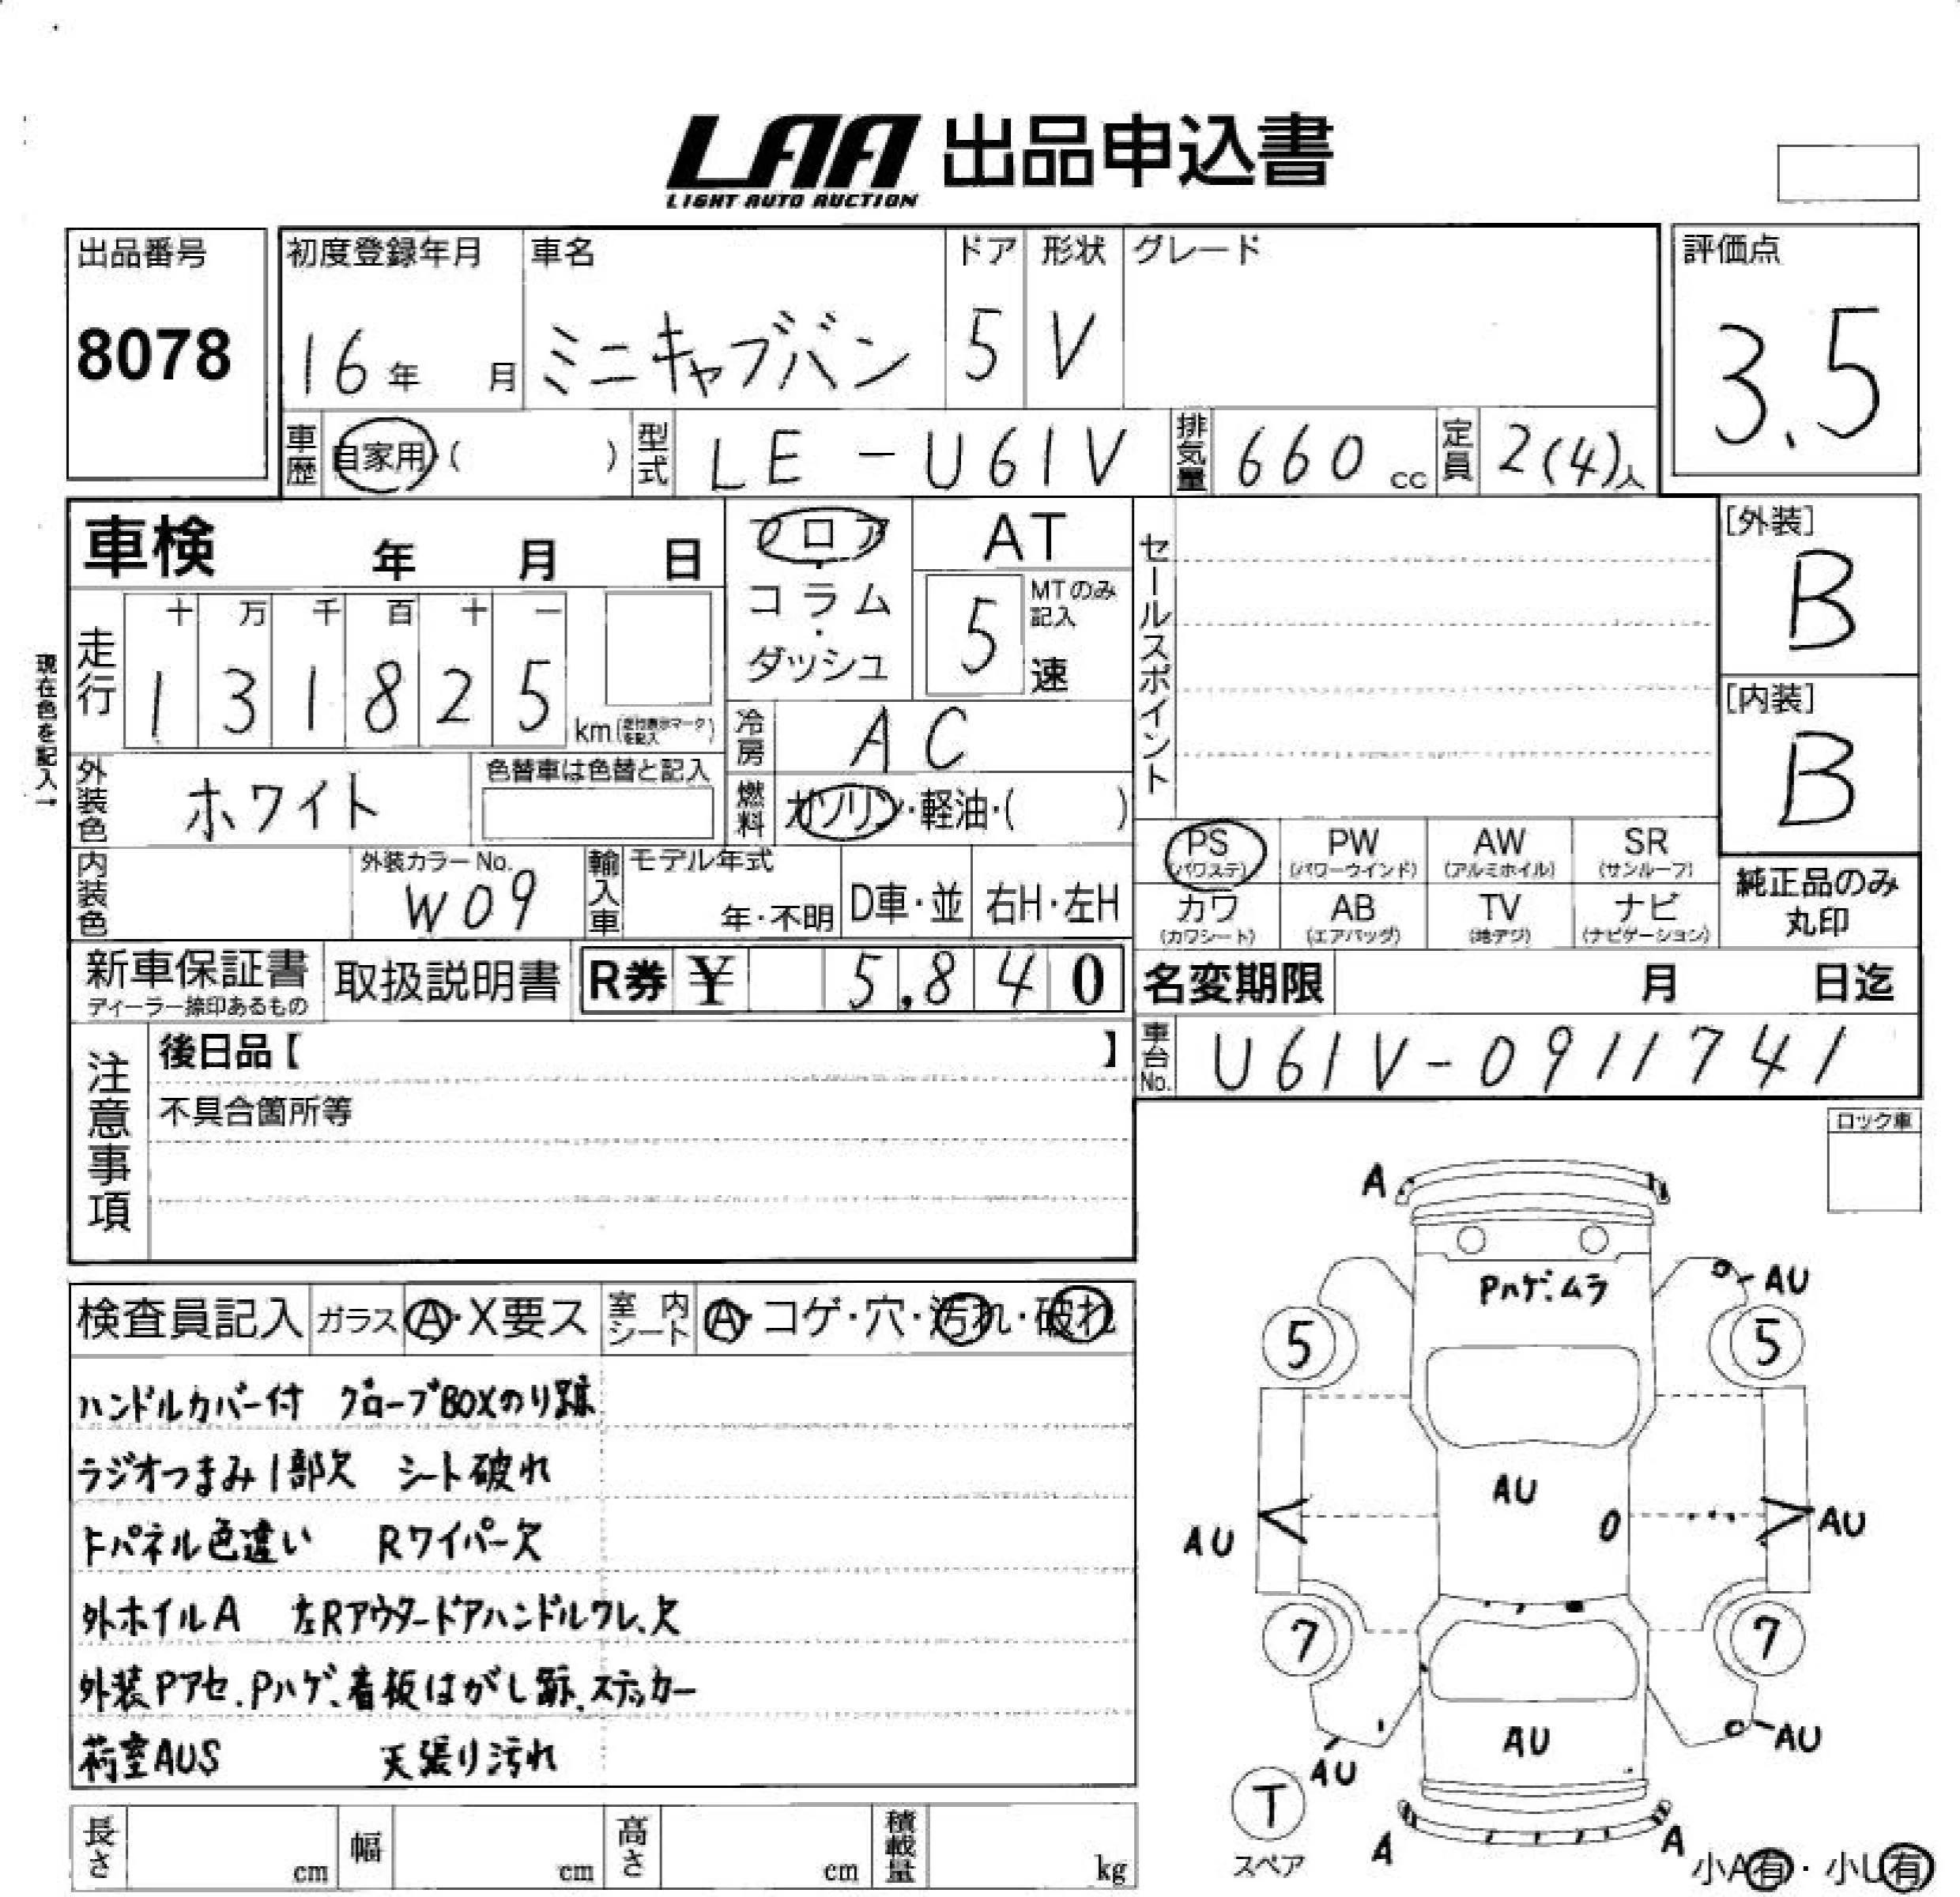 LAA 出品申込書
LIGHT AUTO AUCTION
出品番号
8078
初度登録年月
16年 月
車名
ミニキャブバン
ドア
5
形状
V
グレード
評価点
3.5
車歴 自家用 ( )
型式 LE-U61V
排気量 660 cc
定員 2(4)人
車検 年 月 日
フロア・コラム・ダッシュ
AT
5 MTのみ記入 速
セールスポイント
[外装]
B
[内装]
B
現在色を記入→
走行
十 万 千 百 十 一
1 3 1 8 2 5 km (走行表示マークを記入)
冷房 AC
外装色 ホワイト
色替車は色替と記入
燃料 ガソリン・軽油・( )
PS (パワステ)
PW (パワーウインド)
AW (アルミホイル)
SR (サンルーフ)
カワ (カワシート)
AB (エアバッグ)
TV (地デジ)
ナビ (ナビゲーション)
純正品のみ丸印
内装色
外装カラーNo.
W09
輸入車
モデル年式
年・不明
D車・並
右H・左H
新車保証書
ディーラー捺印あるもの
取扱説明書
R券 ¥ 5,840
名変期限 月 日迄
車台No. U61V-0911741
注意事項
後日品【 】
不具合箇所等
ロック車
検査員記入 ガラス A・X要ス 室内シート A・コゲ・穴・汚れ・破れ
ハンドルカバー付 グローブBOXのり跡
ラジオつまみ1部欠 シート破れ
Fパネル色違い Rワイパー欠
外ホイルA 左Rアウタードアハンドルワレ、欠
外装Pアセ、Pハゲ、看板はがし跡、ステッカー
荷室AUS 天張り汚れ
A
Pハゲ、ムラ
AU
5
5
AU
AU
AU
7
7
AU
AU
AU
T
スペア
A
A
小A有・小U有
長さ cm
幅 cm
高さ cm
積載量 kg